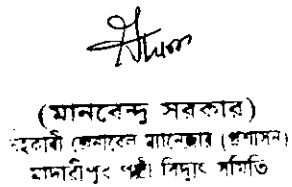 (মানবেন্দ্র সরকার)
সহকারী জেনারেল ম্যানেজার (প্রশাসন)
মাদারীপুর পল্লী বিদ্যুৎ সমিতি